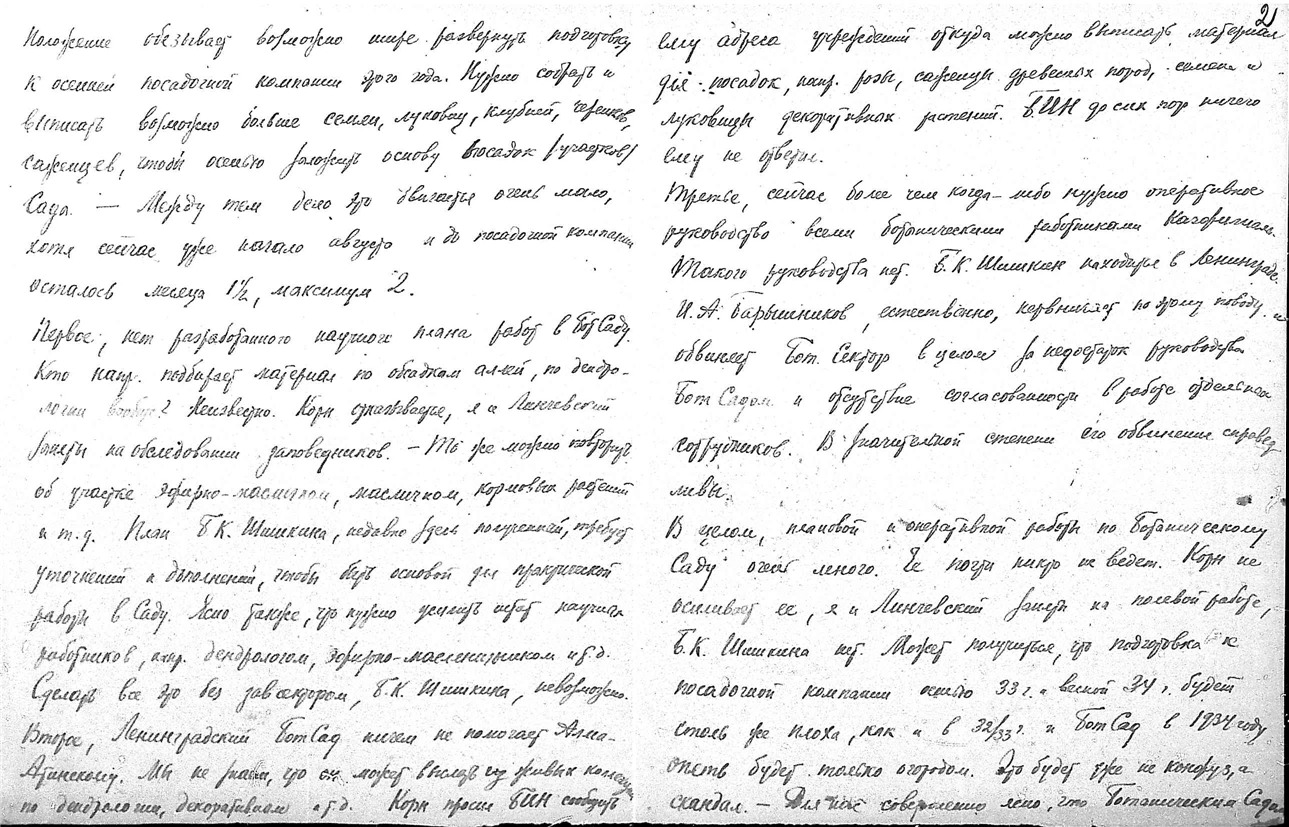 Положение обязывает возможно шире развернуть подготовку
к осенней посадочной компании этого года. Нужно собрать и
выписать возможно больше семян, луковиц, клубней, черенков,
саженцев, чтобы осенью заложить основу посадок /участков/
Сада. — Между тем дело это двигается очень мало,
хотя сейчас уже начало августа и до посадочной компании
осталось месяца 1½, максимум 2.
Первое, нет разработанного научного плана работ в БотСаду.
Кто напр. подбирает материал по обсадкам аллей, по дендро-
логии вообще? Неизвестно. Корн отказывается, я и Линчевский
заняты на обследовании заповедников. — То же можно повторить
об участке эфирно-масличном, масличном, кормовых растений
и т.д. План Б.К. Шишкина, недавно здесь полученный, требует
уточнений и дополнений, чтобы быть основой для практической
работы в Саду. Ясно также, что нужно усилить штат научных
работников, напр. дендрологом, эфирно-масленичником и т.д.
Сделать все это без завсектором, Б.К. Шишкина, невозможно.
Второе, Ленинградский БотСад ничем не помогает Алма-
Атинскому. Мы не знаем, что он может выслать из живых коллекций
по дендрологии, декоративном и т.д. Корн просил БИН сообщить
2
ему адреса учреждений откуда можно выписать материал
для посадок, напр. розы, саженцы древесных пород, семена и
луковицы декоративных растений. БИН до сих пор ничего
ему не ответил.
Третье, сейчас более чем когда-либо нужно оперативное
руководство всеми ботаническими работниками Казфилиала.
Такого руководства нет. Б.К. Шишкин находится в Ленинграде.
И.А. Барышников, естественно, нервничает по этому поводу и
обвиняет Бот. Сектор в целом за недостаток руководства
Бот Садом и отсутствие согласованности в работе отдельных
сотрудников. В значительной степени его обвинения справед
ливы.
В целом, плановой и оперативной работы по Ботаническому
Саду очень много. Ее почти никто не ведет. Корн не
осиливает ее, я и Линчевский заняты на полевой работе,
Б.К. Шишкина нет. Может получиться, что подготовка к
посадочной компании осенью 33 г. и весной 34 г. будет
столь же плоха, как и в 32/33 г. и БотСад в 1934 году
опять будет только огородом. Это будет уже не конфуз, а
скандал. — Для нас совершенно ясно, что Ботаническим Садом